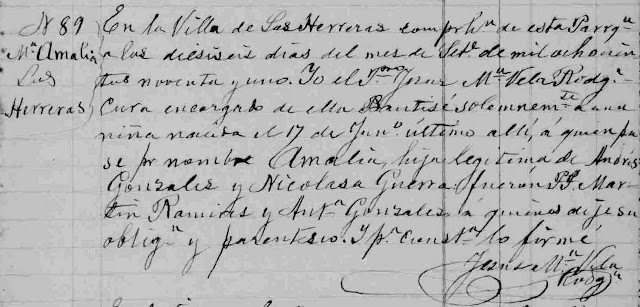 N 89 En la Villa de Las Herreras comprh.n de esta Parrq.a
M.a Amalia a los dieziseis dias del mes de Set.e de mil ochocien
Las tos noventa y uno. Yo el Jesus M.a Vela Rodg.z
Herreras Cura encargado de ella Bautisé solemnem.te a una
niña nacida el 17 de Jun.o último alli, á quien pu
se pr nombre Amalia, hija legitima de Andres
Gonzales y Nicolasa Guerra fueron PP. Mar
tin Ramires y Ant.a Gonzales, á quienes dije su
oblig.n y parentesco. Y p.a const.a lo firmé
Jesus M.a Vela
Rodg.z